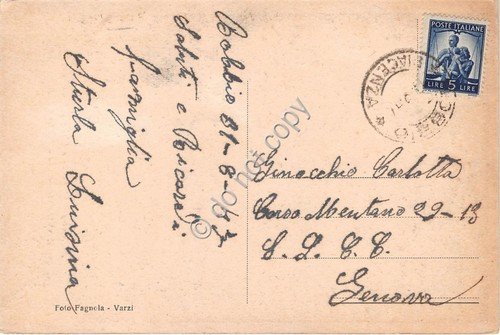 Bobbio 31-8-47
Saluti e Ricordi
famiglia
Sturla Luisina
POSTE ITALIANE
LIRE 5 LIRE
BOBBIO
PIACENZA
Ginocchio Carlotta
Corso Mentano 29-13
S. L. C. C.
Genova
Foto Fagnola - Varzi
do not copy